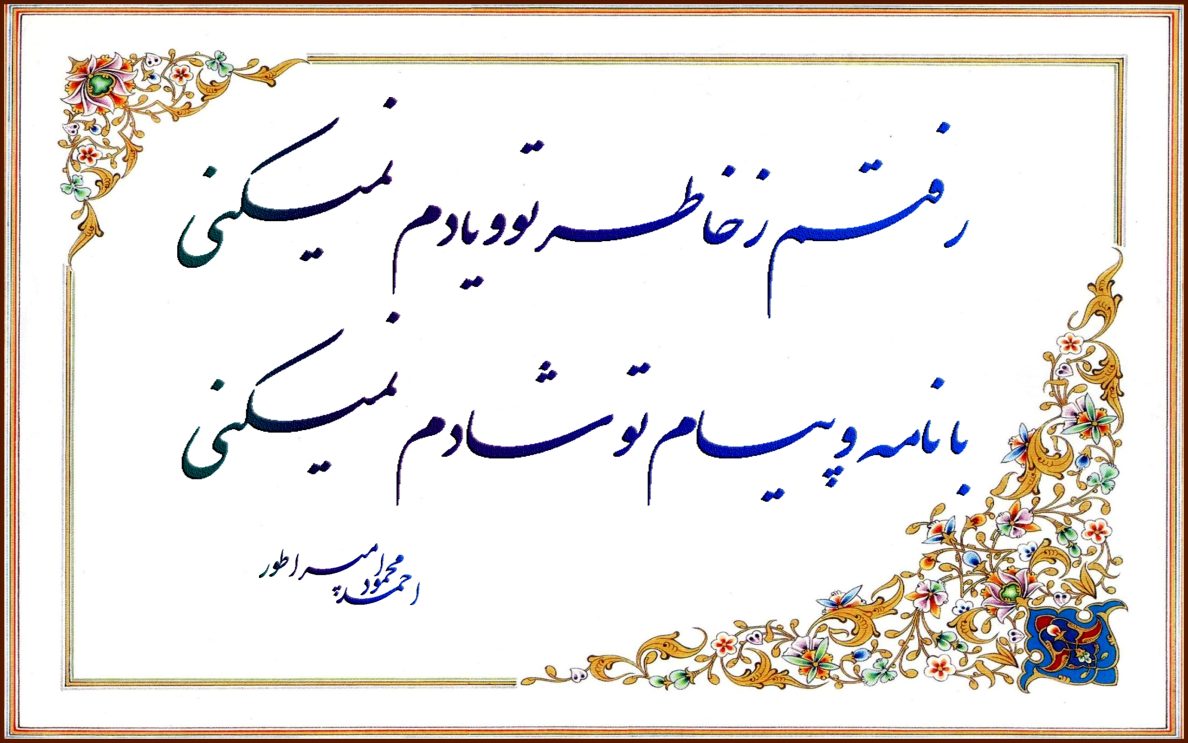 رفتم ز خاطر تو و یادم نمیکنی
با نامه و پیام تو شادم نمیکنی
احمد محمود امپراطور